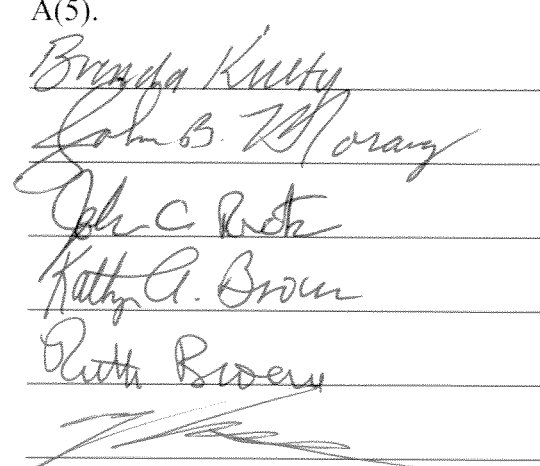 A(5).
Brenda Kielty
John B. Morang
John C. Root
Kathryn A. Brown
Ruth Brown